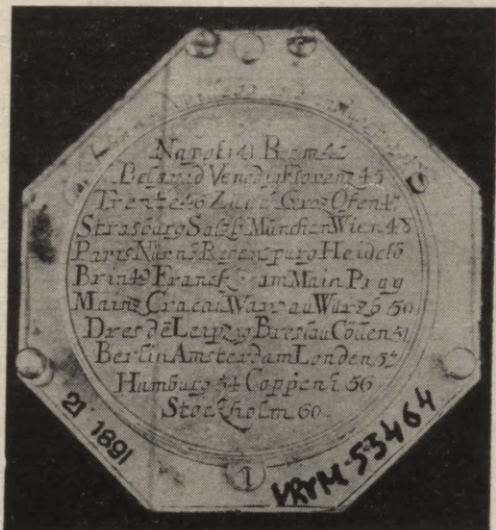 Napoli 41 Rom 42
Belgrad Venedig Florenz 45
Trente 46 Zürch Graz Ofen 47
Strasburg Salzb München Wien 48
Paris Nürnb Regenspurg Heidelb
Brin 49 Franckf am Main Prag
Mainz Cracau Warsau Würzb 50
Dresdē Leipzig Breslau Cöllen 51
Berlin Amsterdam London
Hamburg 54 Coppenh 56
Stockholm 60
1
21 1891
53464